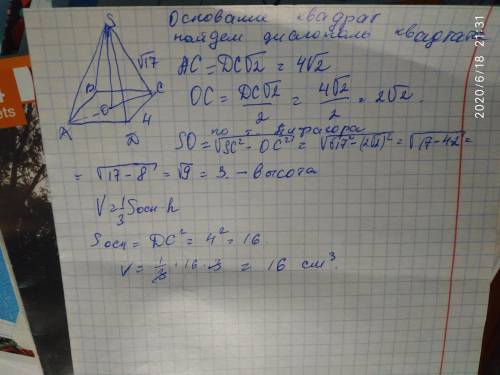 Основание квадрат
найдем диагональ квадрата
AC = DC√2 = 4√2
OC = DC√2/2 = 4√2/2 = 2√2
по т. Пифагора
SO = √SC² - OC² = √√17² - (2√2)² = √17 - 4·2 =
= √17 - 8 = √9 = 3. - высота
V = 1/3 Sосн·h
Sосн = DC² = 4² = 16
V = 1/3 · 16 · 3 = 16 см³.
S
√17
B
C
O
4
A
D
2020/6/18 21:31